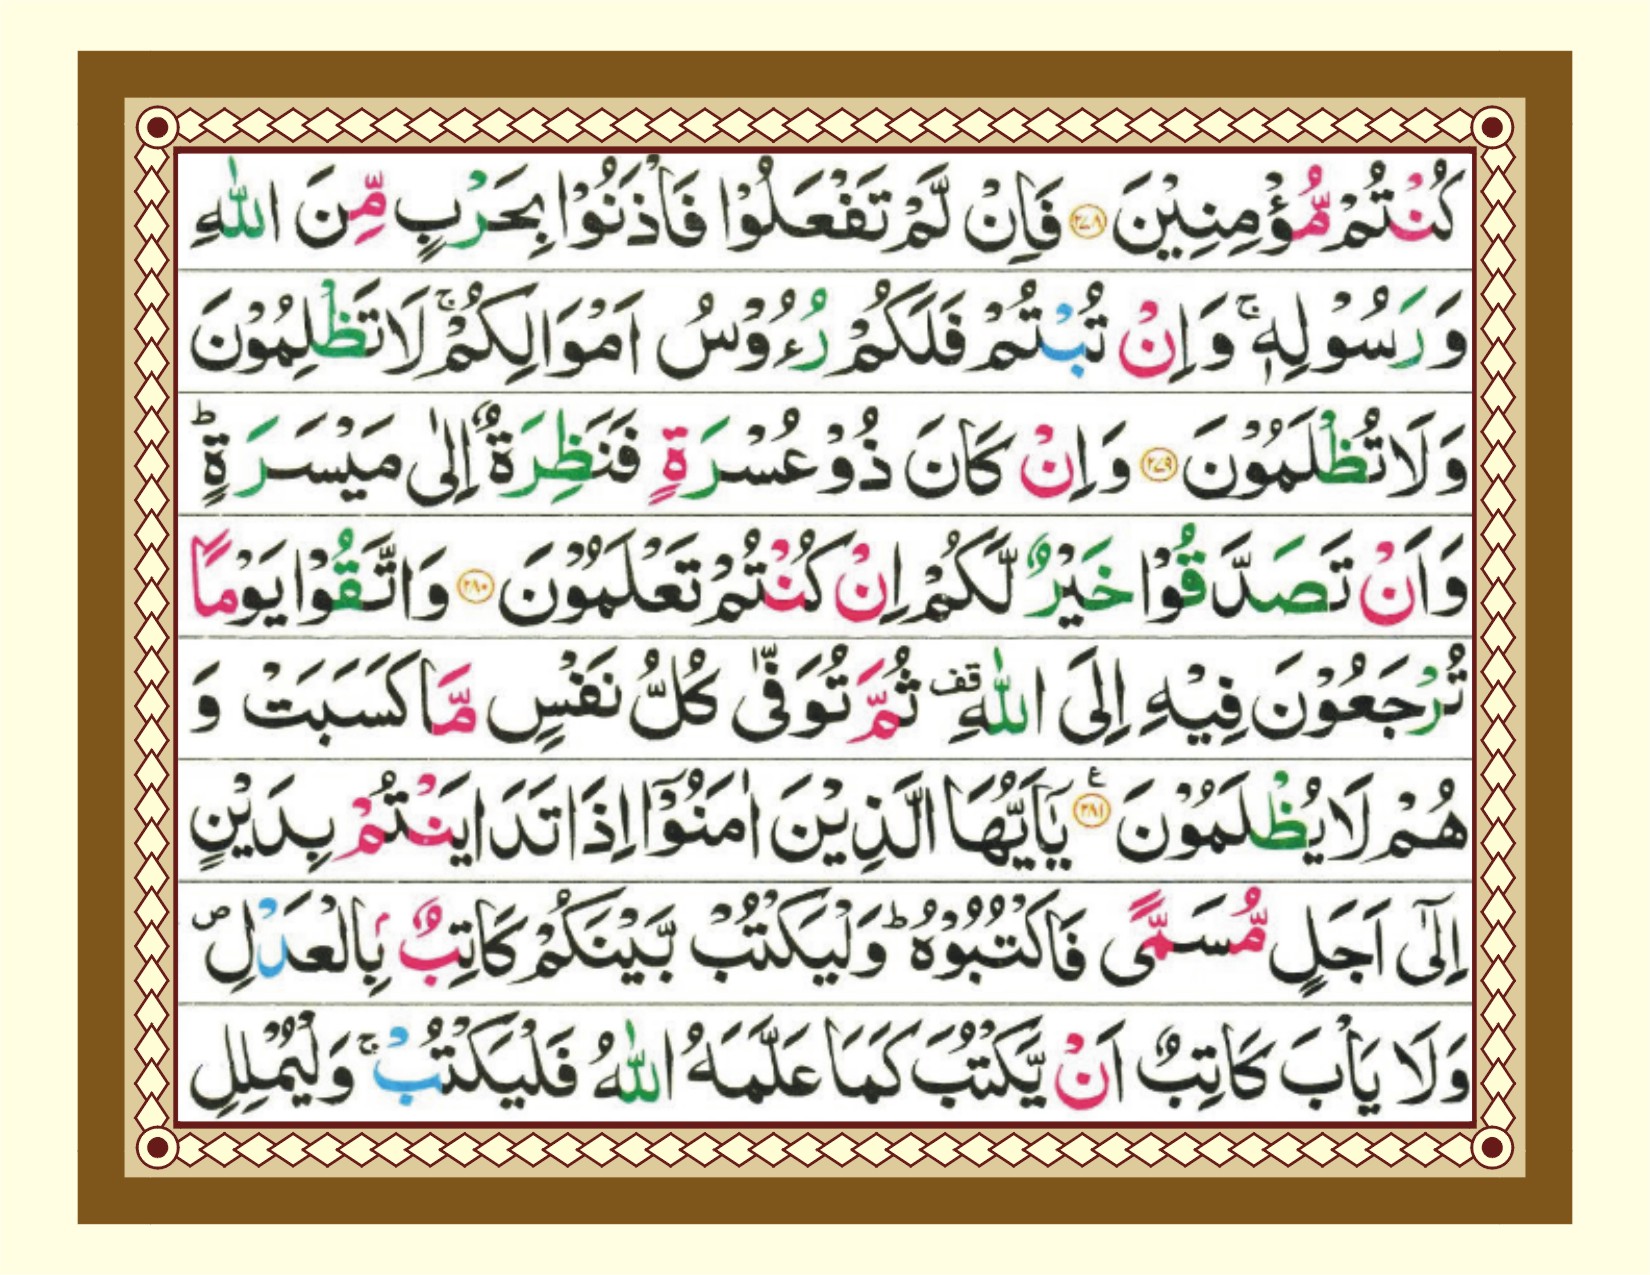 كُنْتُمْ مُّؤْمِنِيْنَ ﴿۲۷۸﴾ فَاِنْ لَّمْ تَفْعَلُوْا فَاْذَنُوْا بِحَرْبٍ مِّنَ اللّٰهِ
وَرَسُوْلِهٖ ۚ وَاِنْ تُبْتُمْ فَلَكُمْ رُءُوْسُ اَمْوَالِكُمْ ۚ لَا تَظْلِمُوْنَ
وَلَا تُظْلَمُوْنَ ﴿۲۷۹﴾ وَاِنْ كَانَ ذُوْ عُسْرَةٍ فَنَظِرَةٌ اِلٰى مَيْسَرَةٍ ؕ
وَاَنْ تَصَدَّقُوْا خَيْرٌ لَّكُمْ اِنْ كُنْتُمْ تَعْلَمُوْنَ ﴿۲۸۰﴾ وَاتَّقُوْا يَوْمًا
تُرْجَعُوْنَ فِيْهِ اِلَى اللّٰهِ قف ثُمَّ تُوَفّٰى كُلُّ نَفْسٍ مَّا كَسَبَتْ وَ
هُمْ لَا يُظْلَمُوْنَ ﴿۲۸۱﴾ ع يٰۤاَيُّهَا الَّذِيْنَ اٰمَنُوْۤا اِذَا تَدَايَنْتُمْ بِدَيْنٍ
اِلٰۤى اَجَلٍ مُّسَمًّى فَاكْتُبُوْهُ ؕ وَلْيَكْتُبْ بَّيْنَكُمْ كَاتِبٌۢ بِالْعَدْلِ ۪
وَلَا يَاْبَ كَاتِبٌ اَنْ يَّكْتُبَ كَمَا عَلَّمَهُ اللّٰهُ فَلْيَكْتُبْ ۚ وَلْيُمْلِلِ